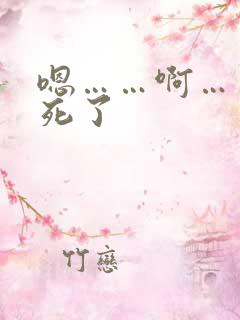 嗯……啊…
死了
竹戀